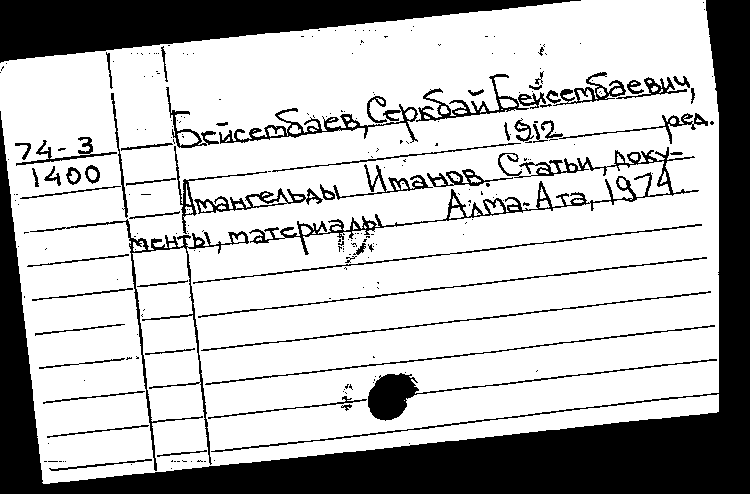 Бейсетбаев, Серкбай Бейсетбаевич,
1912 ред.
74-3
1400
Амангельды Иманов. Статьи, доку-
менты, материалы. Алма-Ата, 1974.